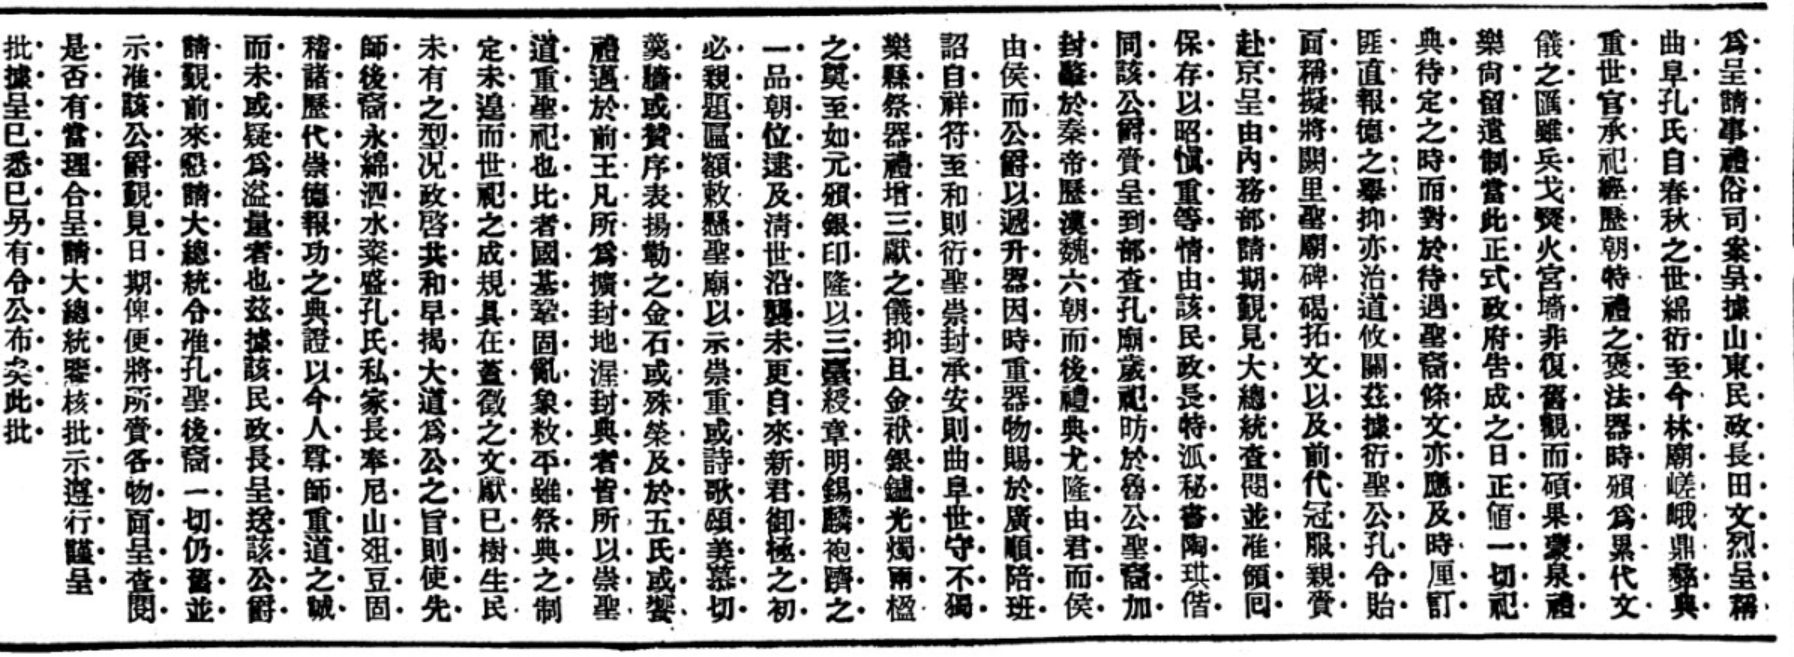 爲呈請事禮俗司案呈據山東民政長田文烈呈稱
曲阜孔氏自春秋之世綿衍至今林廟嵯峨鼎彝典
重世官承祀經歷朝特禮之褒法器時頒爲累代文
儀之匯雖兵戈燹火宮墻非復舊觀而碩果靈泉禮
樂尙留遺制當此正式政府告成之日正値一切祀
典待定之時而對於待遇聖裔條文亦應及時厘訂
匪直報德之舉抑亦治道攸關茲據衍聖公孔令貽
面稱擬將闕里聖廟碑碣拓文以及前代冠服親賫
赴京呈由內務部請期覲見大總統查閱並准領回
保存以昭愼重等情由該民政長特派秘書陶珙偕
同該公爵賫呈到部查孔廟歲祀昉於魯公聖裔加
封肇於秦帝歷漢魏六朝而後禮典尤隆由君而侯
由侯而公爵以遞升器因時重器物賜於廣順陪班
詔自祥符至和則衍聖崇封承安則曲阜世守不獨
樂縣祭器禮增三獻之儀抑且金袱銀鑪光燭兩楹
之奠至如元頒銀印隆以三臺綬章明錫麟袍躋之
一品朝位逮及淸世沿襲未更自來新君御極之初
必親題匾額敕懸聖廟以示崇重或詩歌頌美慕切
羹牆或贊序表揚勒之金石或殊榮及於五氏或饗
禮邁於前王凡所爲擴封地渥封典者皆所以崇聖
道重聖祀也比者國基鞏固亂象敉平雖祭典之制
定未遑而世祀之成規具在蓋徵之文獻已樹生民
未有之型况政啓共和早揭大道爲公之旨則使先
師後裔永綿泗水粢盛孔氏私家長奉尼山俎豆固
稽諸歷代崇德報功之典證以今人尊師重道之誠
而未或疑爲溢量者也茲據該民政長呈送該公爵
請覲前來懇請大總統令准孔聖後裔一切仍舊並
示准該公爵覲見日期俾便將所賫各物面呈查閱
是否有當理合呈請大總統鑒核批示遵行謹呈
批據呈已悉已另有令公布矣此批